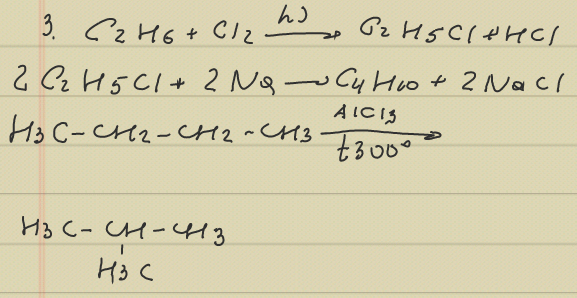 3. C2H6 + Cl2 hν⟶ C2H5Cl + HCl
2C2H5Cl + 2Na ⟶ C4H10 + 2NaCl
H3C-CH2-CH2-CH3 AlCl3⟶ t300°
H3C-CH-CH3
H3C